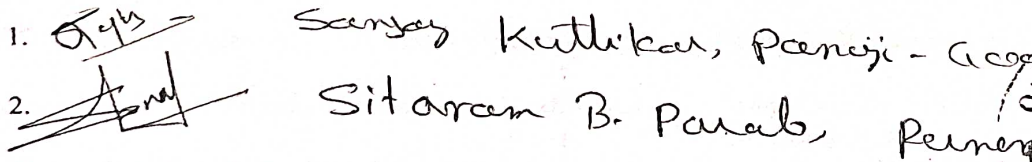 1. Sanjay Kuthikar, Panaji - Goa
2. Sitaram B. Parab,